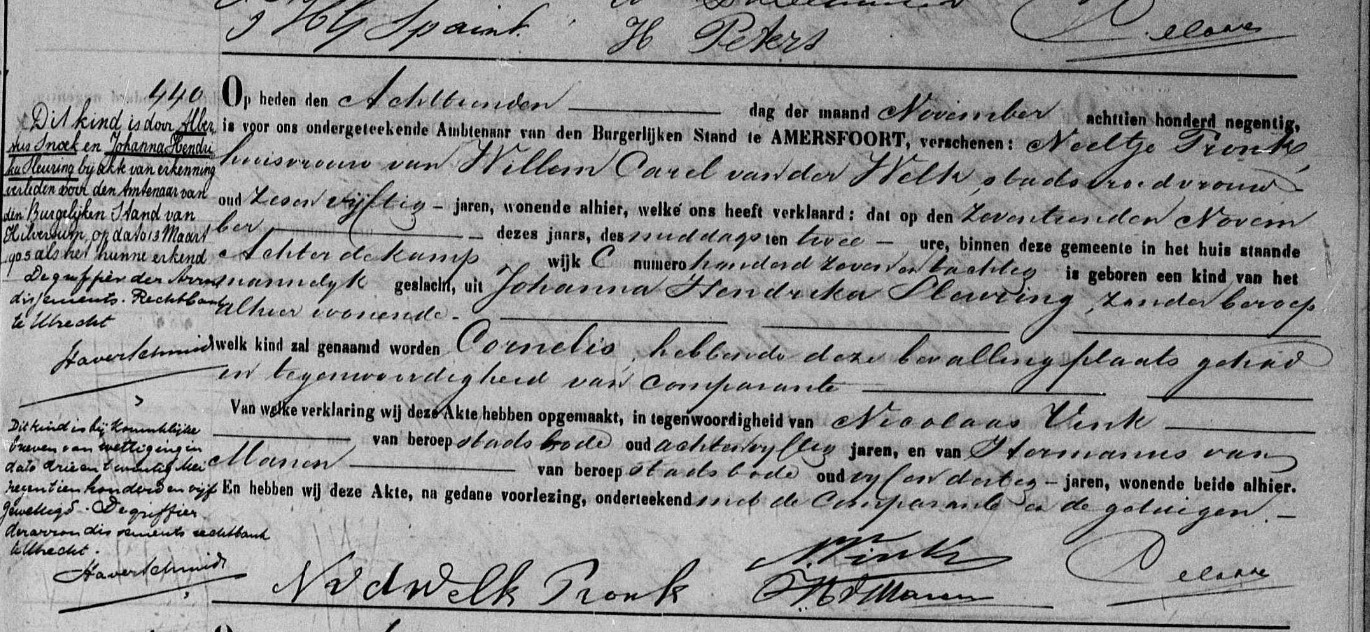 J H G Spaint H Peters
440
Op heden den Achttienden dag der maand November achttien honderd negentig,
is voor ons ondergeteekende Ambtenaar van den Burgerlijken Stand te AMERSFOORT, verschenen: Neeltje Pronk,
huisvrouw van Willem Carel van der Welk, stadsvroedvrouw
oud zesenvijftig jaren, wonende alhier, welke ons heeft verklaard: dat op den zeventienden Novem
ber dezes jaars, des middags ten twee ure, binnen deze gemeente in het huis staande
Achter de kamp wijk C numero honderd zevenentachtig is geboren een kind van het
mannelijk geslacht, uit Johanna Hendrika Fleuring, zonder beroep
alhier wonende.
welk kind zal genaamd worden Cornelis, hebbende deze bevalling plaats gehad
in tegenwoordigheid van comparante
Van welke verklaring wij deze Akte hebben opgemaakt, in tegenwoordigheid van Nicolaas Vink
van beroep stadsbode oud achtenvyftig jaren, en van Hermanus van
Manen van beroep stadsbode oud vyfendertig jaren, wonende beide alhier.
En hebben wij deze Akte, na gedane voorlezing, onderteekend met de comparante en de getuigen.
N v d Welk Pronk
N. Vink
H v Manen
Dit kind is door Alber
tus Snoek en Johanna Hendri
ka Fleuring bij akte van erkenning
verleden voor den Amtenaar van
den Burgelijken Stand van
Hilversum, op dato 13 Maart
905 als het hunne erkend
De griffier der Arron
dissements-Rechtbank
te Utrecht
Haverschmidt
Dit kind is bij Koninklijke
brieven van wettiging in
dato drie en twintig Mei
negentienhonderd en vijf
gewettigd. De griffier
der arrondissements rechtbank
te Utrecht.
Haverschmidt